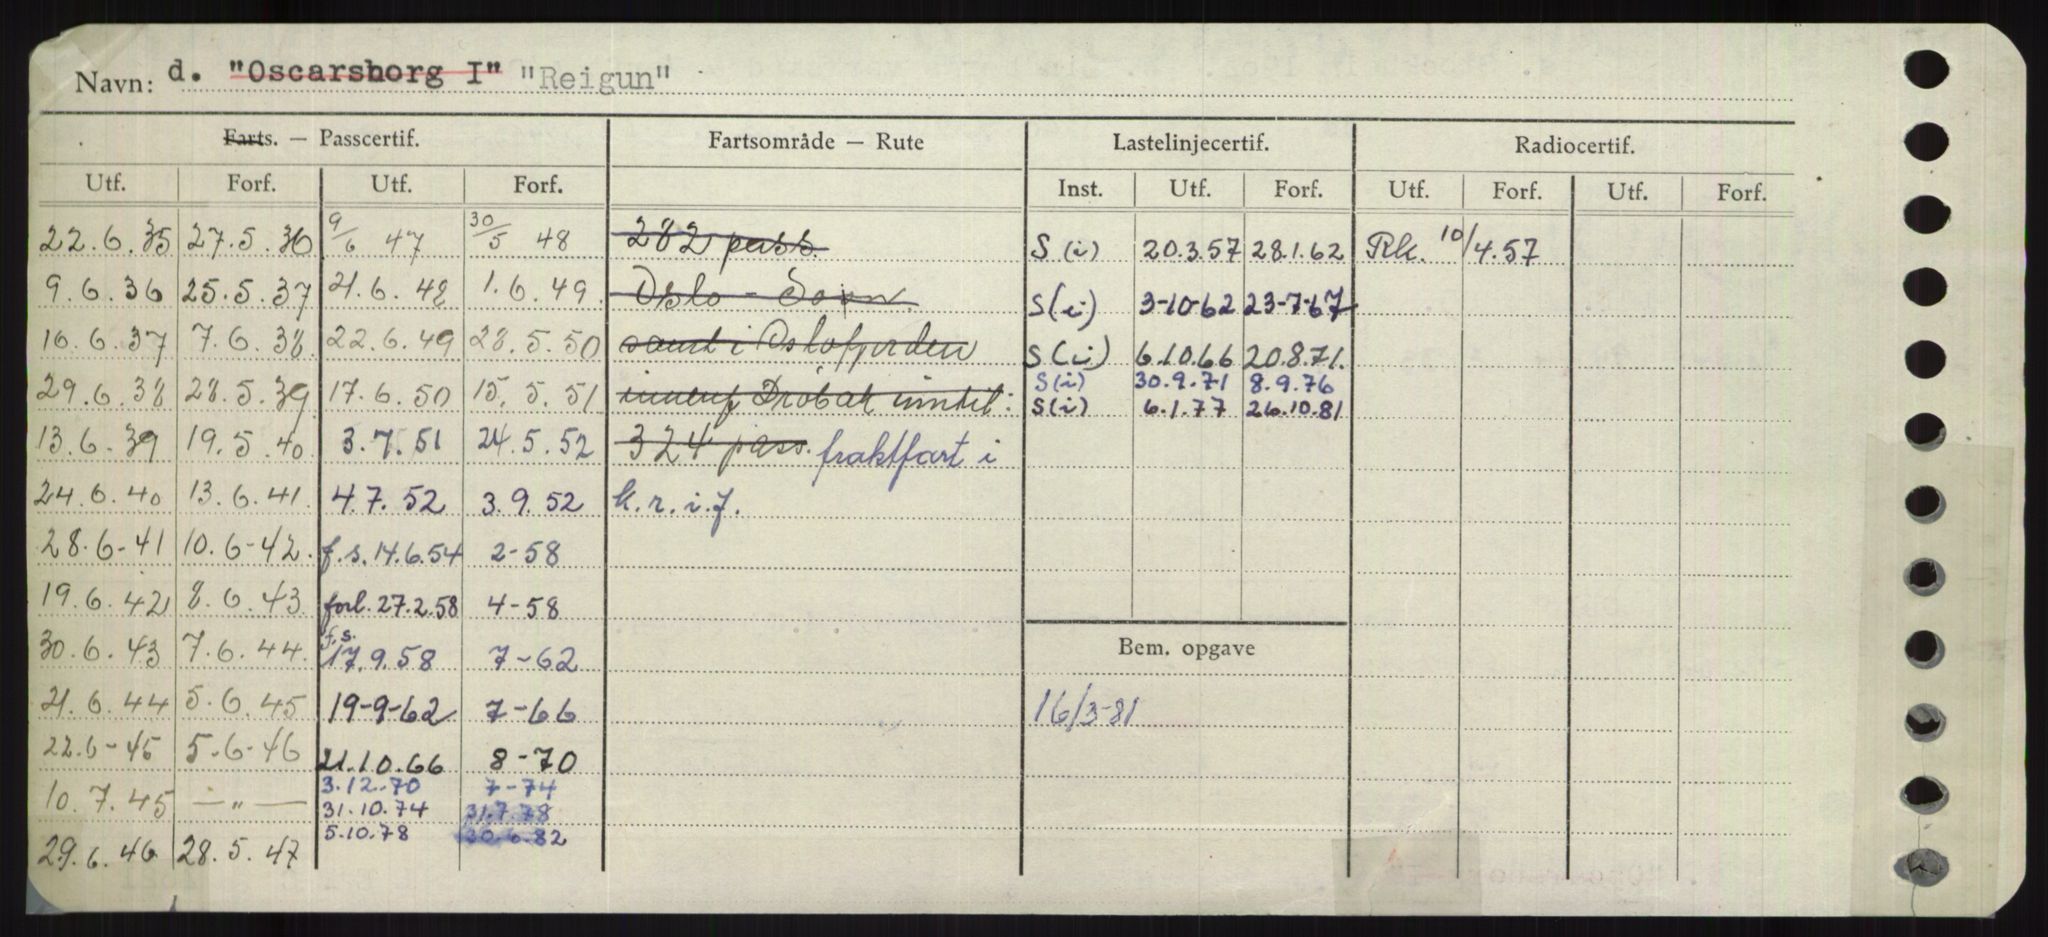 Navn: d. "Oscarsborg I" "Reigun"
Farts. — Passcertif. Fartsområde — Rute Lastelinjecertif. Radiocertif.
Utf. Forf. Utf. Forf. Inst. Utf. Forf. Utf. Forf. Utf. Forf.
22.6.35 27.5.36 9/6 47 30/5 48 282 pass. S(i) 20.3.57 28.1.62 Rk. 10/4.57
9.6.36 25.5.37 21.6.48 1.6.49 Oslo - S(i) 3-10-62 23-7-67
16.6.37 7.6.38 22.6.49 28.5.50 samt i Oslofjorden S(i) 6.10.66 20.8.71.
29.6.38 28.5.39 17.6.50 15.5.51 innenf Drøbak inntil: S(i) 30.9.71 8.9.76
S(i) 6.1.77 26.10.81
13.6.39 19.5.40 3.7.51 24.5.52 324 pass. fraktfart i
24.6.40 13.6.41 4.7.52 3.9.52 k.r.i.f.
28.6-41 10.6-42. f.s.14.6.54 2-58
19.6.42 8.6.43 forl.27.2.58 4-58
30.6.43 7.6.44. f.s. 17.9.58 7-62 Bem. opgave
21.6.44 5.6.45 19-9-62 7-66 16/3-81
22.6-45 5.6-46 21.10.66 8-70
3.12.70 7-74
10.7.45 — " — 31.10.74 31.7.78
5.10.78 30.6.82
29.6.46 28.5.47